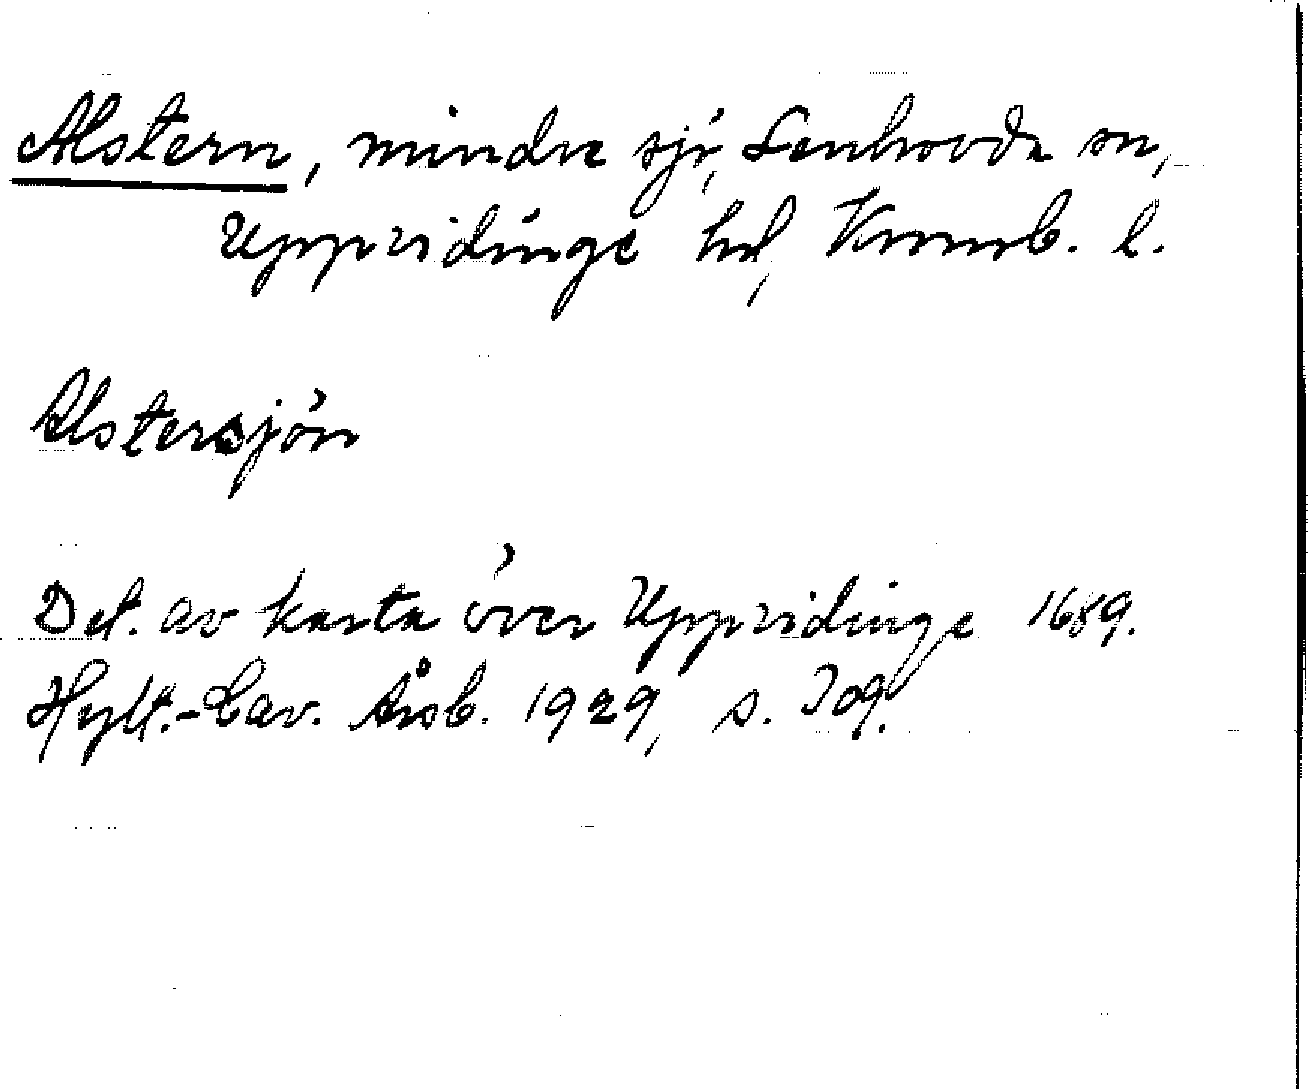 Alstern, mindre sjö, Lenhovda sn,
Uppvidinge hd, Kronob. l.
Alstersjön
Det. av karta över Uppvidinge 1689.
Hylt.-Cav. Årsb. 1929, s. 209.